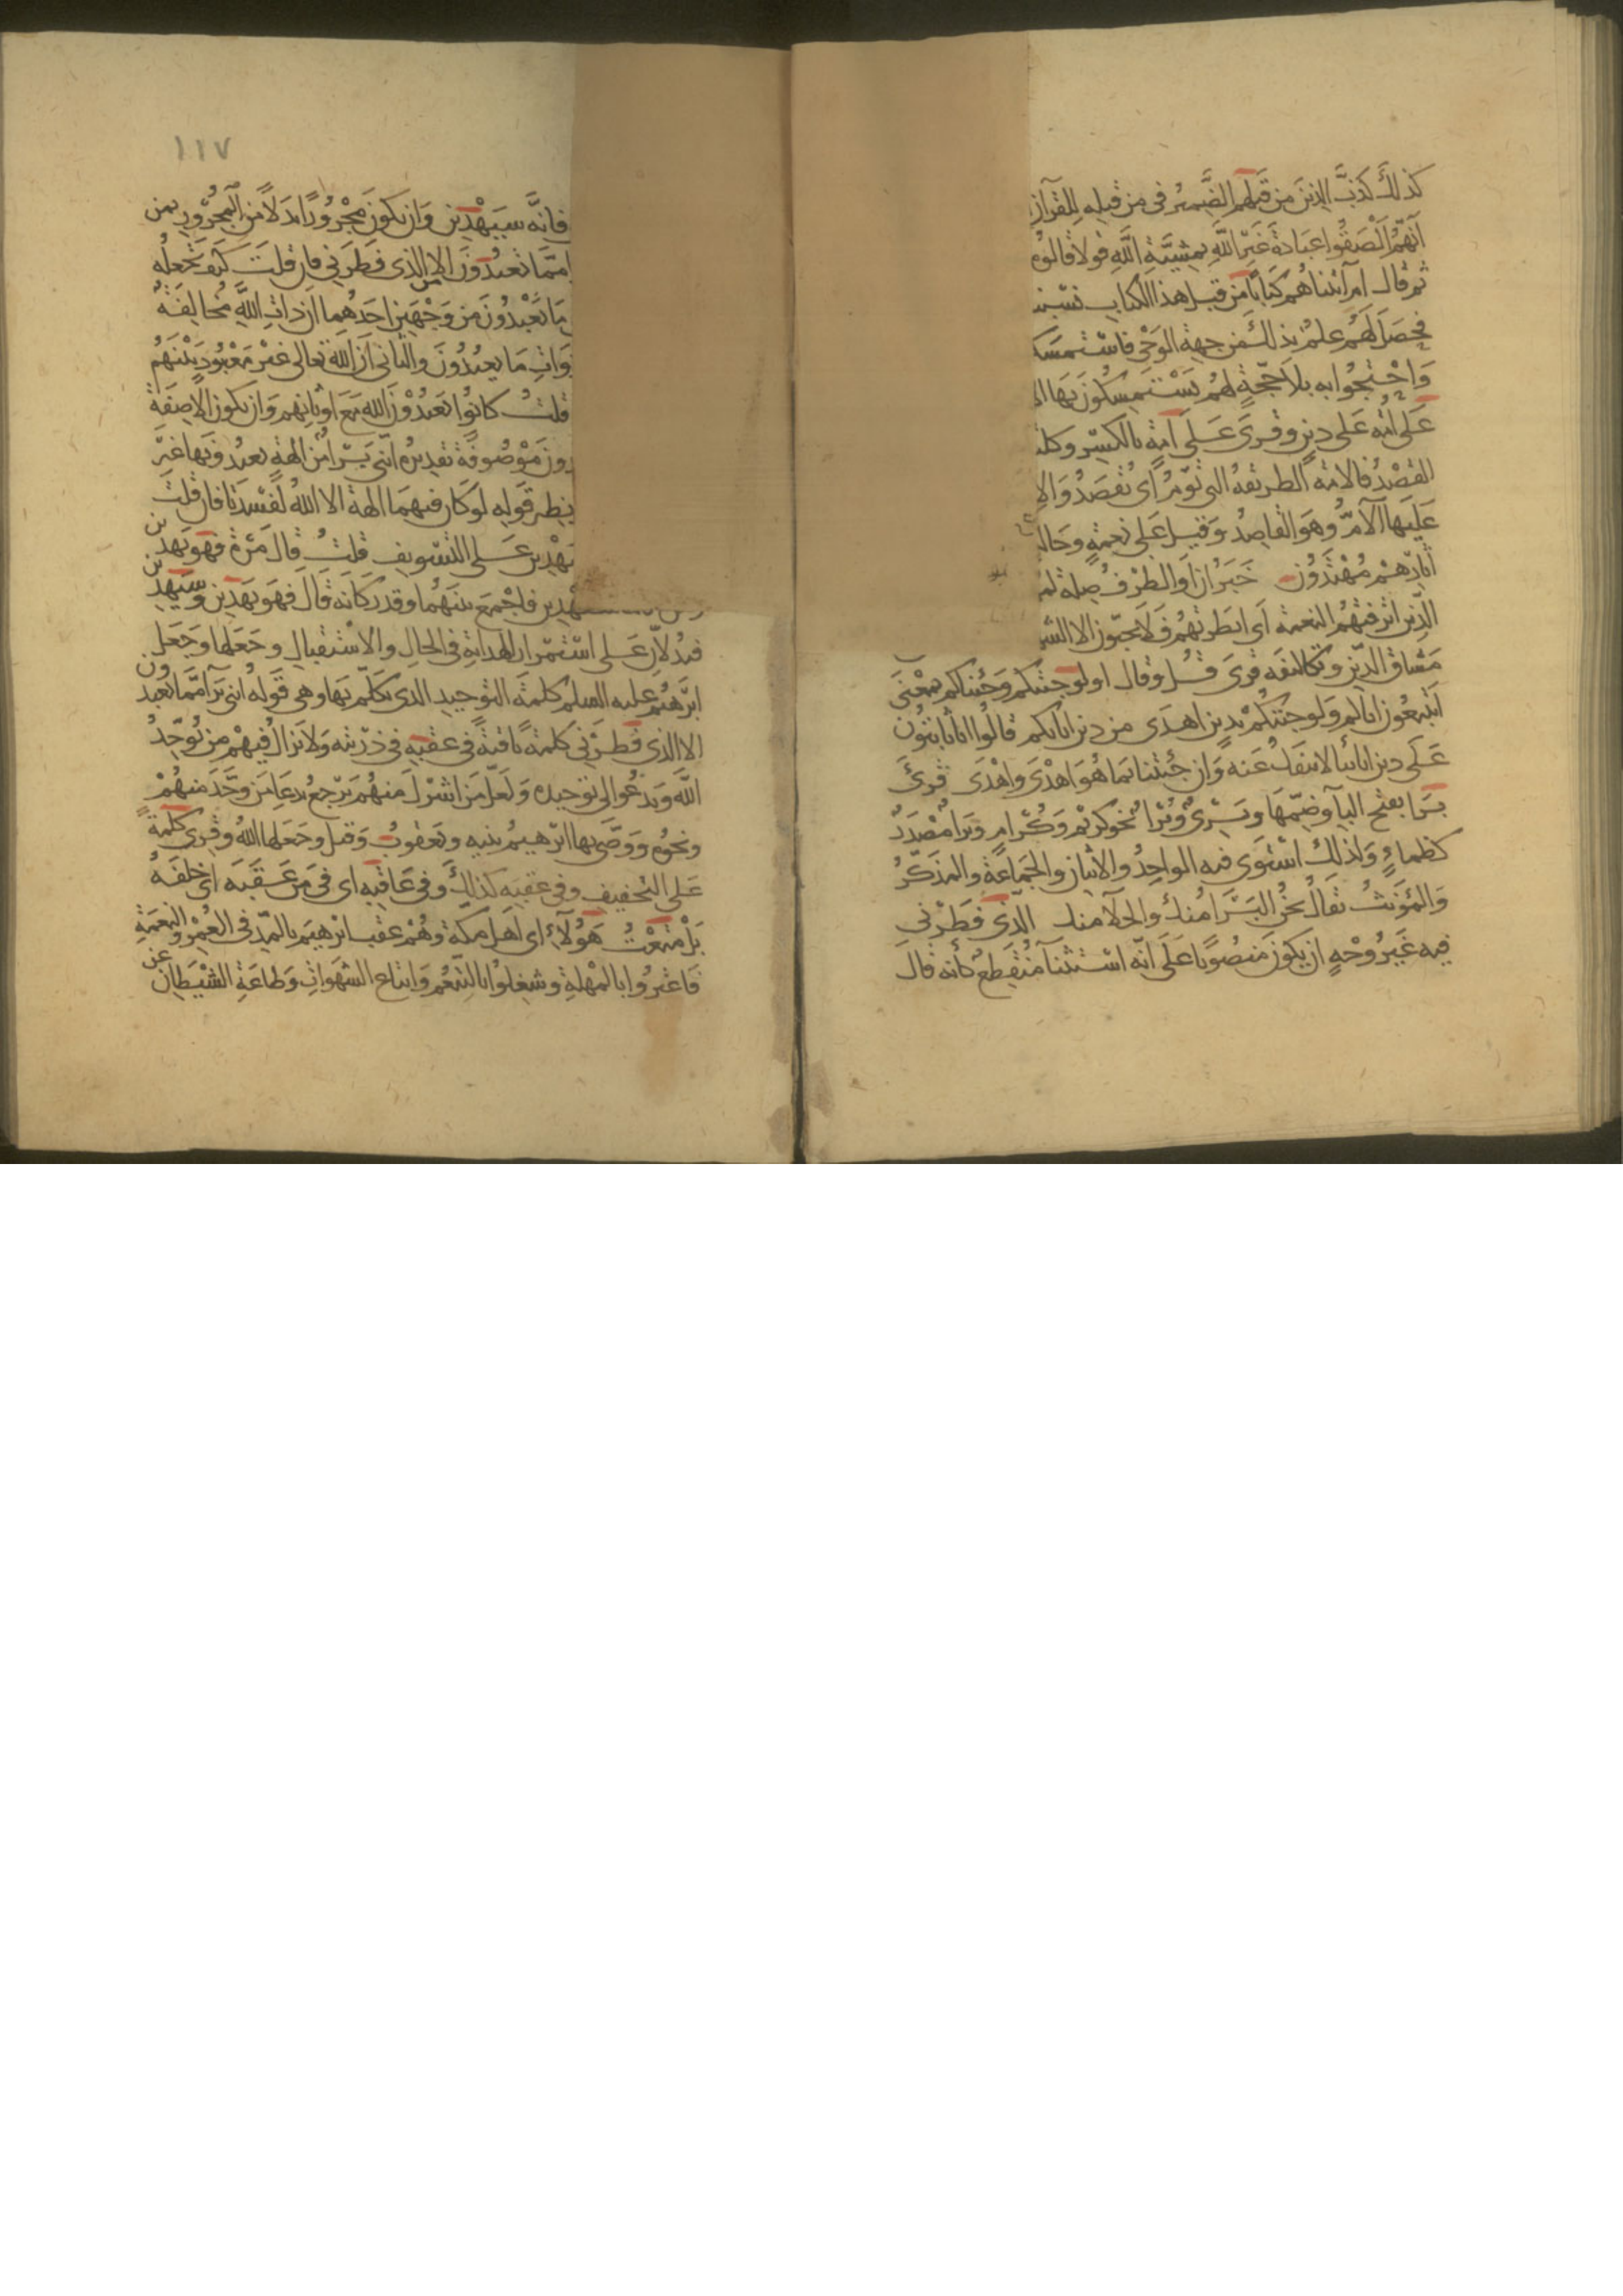 كذلك كذب الذين من قبلهم الضمير في من قبله للقرآن
انهم الصقوا عبادة غير الله بمشيئة الله قولا قالوه
ثم قال ام آتيناهم كتابا من قبل هذا الكتاب نسبنا
فحصل لهم علم بذلك من جهة الوحي فاستمسكوا
واحتجوا به بل لا حجة لهم يستمسكون بها الا
على امة على دين وقرى على امة بالكسر وكلتا
القصد فالامة الطريقة التي تؤم اى تقصد والا
عليها الآم وهو القاصد وقيل على نعمة وحالة
اثارهم مهتدون خبر ان او الظرف صلة لم
الذين اترفتهم النعمة اى ابطرتهم فلا يحبون الا الشه
مشاق الدين وتكاليفه قرى قل وقال اولو جئتكم وجئناكم بمعنى
اتتبعون اباكم ولو جئتكم بدين اهدى من دين ابائكم قالوا انا ثابتون
على دين ابائنا لا ننفك عنه وان جئتنا بما هو اهدى واهدى قرئ
برا بفتح البآ وضمها وبرى وبرا نحو كريم وكرام وبرا مصدر
كظماء ولذلك استوى فيه الواحد والاثنان والجماعة والمذكر
والمؤنث يقال نحن البرا منك والخلا منك الذى فطرنى
فيه غير وجه ان يكون منصوبا على انه استثنآ منقطع كانه قال
١١٧
فانه سيهدين وان يكون مجرورا بدلا من المجرور بمن
مما تعبدون الا من الذى فطرنى فان قلت كيف تجعله
ما تعبدون من وجهين احدهما ان ذات الله مخالفة
وات ما يعبدون والثانى ان الله تعالى غير معبود بينهم
قلت كانوا يعبدون الله مع اوثانهم وان يكون الا صفة
ون موصوفة تقديره اننى برا من الهة تعبدونها غير
نظير قوله لو كان فيهما الهة الا الله لفسدتا فان قلت
يهدين على التسويف قلت قال مرة فهو يهدين
سيهدين فاجمع بينهما وقدر كانه قال فهو يهدين وسيهدين
فيدلان على استمرار الهداية في الحال والاستقبال وجعلها وجعل
ابرهيم عليه السلم كلمة التوحيد الذى تكلم بها وهى قوله اننى برآ مما تعبدون
الا الذى فطرنى كلمة باقية في عقبه في ذريته ولا يزال فيهم من يوحد
الله ويدعو الى توحيده ولعل من اشرك منهم يرجع بدعا من وحد منهم
ونحوه ووصى بها ابرهيم بنيه ويعقوب وقيل وجعلها الله وقرى كلمة
على التخفيف وفى عقبه كذلك وفي عاقبه اى فى من عقبه اى خلفه
بل متعت هؤلآء اى اهل مكة وهم عقب ابرهيم بالمد فى العمر والنعمة
فاغتروا بالمهلة وشغلوا بالتنعم واتباع الشهوات وطاعة الشيطان عن